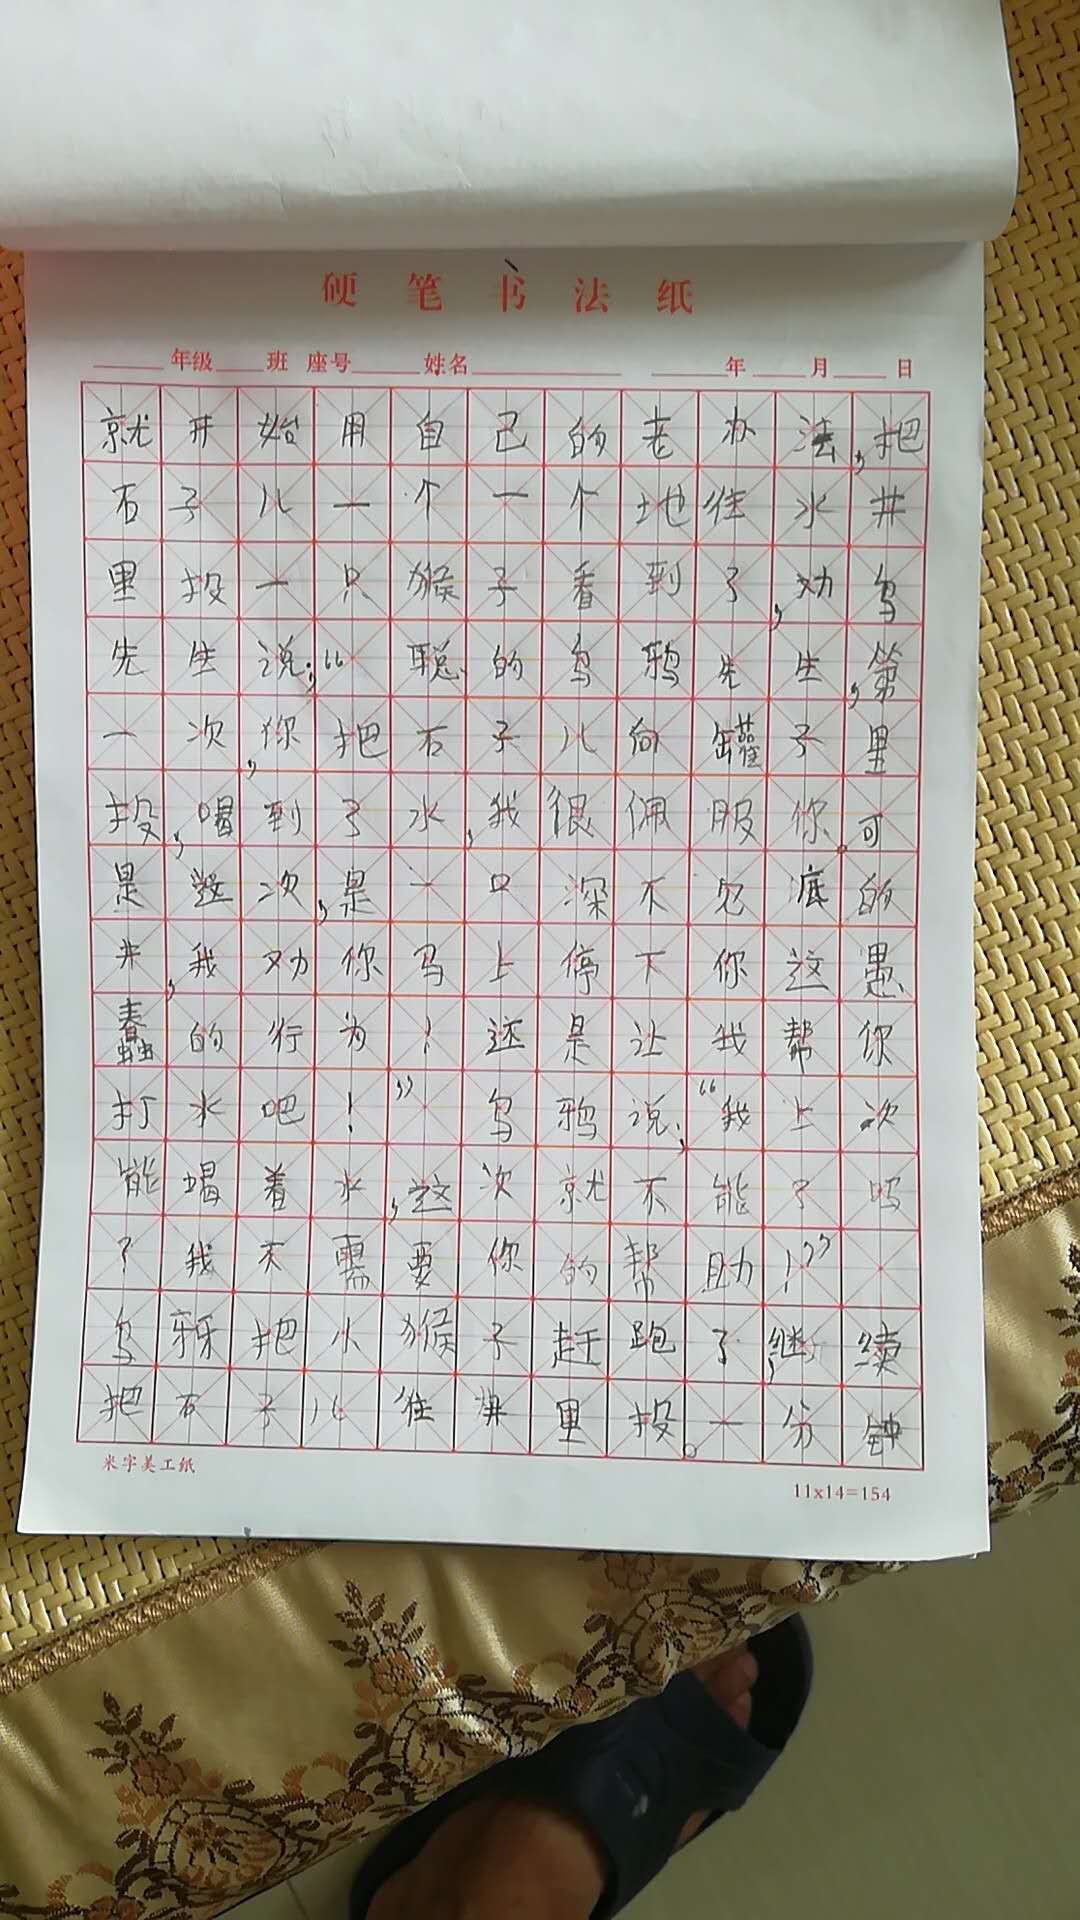 硬笔书法纸
年级 班 座号 姓名 年 月 日
就开始用自己的老办法,把
石子儿一个一个地往水井
里投一只猴子看到了,劝乌
先生说:“聪的乌鸦先生,第
一次,你把石子儿向罐子里
投,喝到了水,我很佩服你。可
是这次,是一只深不见底的
井,我劝你马上停下你这愚
蠢的行为!还是让我帮你
打水吧!”乌鸦说,“我上次
能喝着水,这次就不能了吗
?我不需要你的帮助!”
乌鸦把小猴子赶跑了,继续
把石子儿往井里投。一分钟
米字美工纸
11x14=154